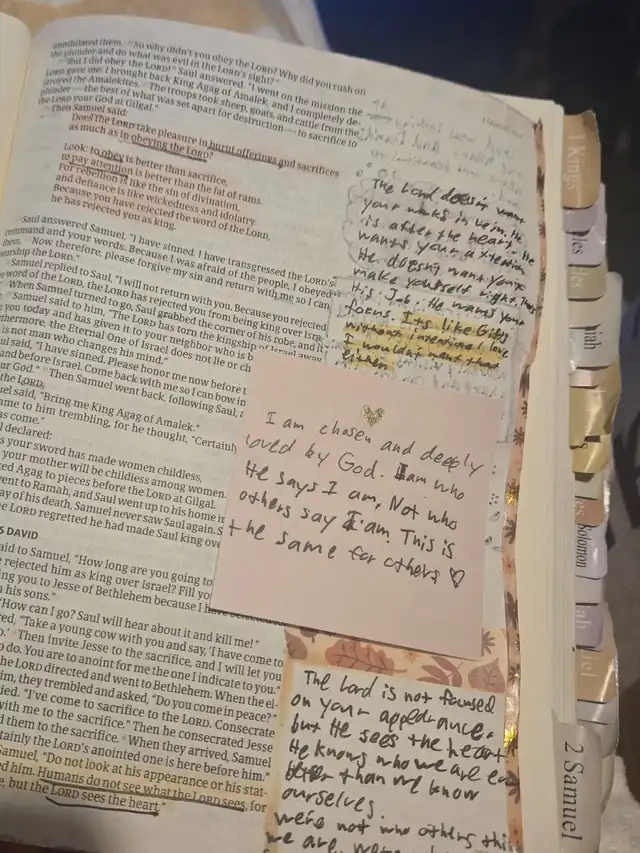 annihilated them. 19 So why didn't you obey the LORD? Why did you rush on
the plunder and do what was evil in the LORD's sight?"
"But I did obey the LORD!" Saul answered. "I went on the mission the
LORD gave me: I brought back King Agag of Amalek, and I completely de-
stroyed the Amalekites. The troops took sheep, goats, and cattle from the
plunder — the best of what was set apart for destruction — to sacrifice to
the LORD your God at Gilgal."
Then Samuel said:
Does the LORD take pleasure in burnt offerings and sacrifices
as much as in obeying the LORD?
Look: to obey is better than sacrifice,
to pay attention is better than the fat of rams.
For rebellion is like the sin of divination,
and defiance is like wickedness and idolatry.
Because you have rejected the word of the LORD,
he has rejected you as king.
Saul answered Samuel, "I have sinned. I have transgressed the LORD's
command and your words. Because I was afraid of the people, I obeyed
them. Now therefore, please forgive my sin and return with me so I can
worship the LORD."
Samuel replied to Saul, "I will not return with you. Because you rejected
the word of the LORD, the LORD has rejected you from being king over Isra
When Samuel turned to go, Saul grabbed the corner of his robe, and it
Samuel said to him, "The LORD has torn the kingship of Israel away
you today and has given it to your neighbor who is b
thermore, the Eternal One of Israel does not lie or ch
is not man who changes his mind."
ul said, "I have sinned. Please honor me now before t
and before Israel. Come back with me so I can bow in
ur God." Then Samuel went back, following Saul,
the LORD.
uel said, "Bring me King Agag of Amalek."
ame to him trembling, for he thought, "Certainly
as come."
l declared:
s your sword has made women childless,
your mother will be childless among women.
ked Agag to pieces before the LORD at Gilgal.
vent to Ramah, and Saul went up to his home i
ay of his death, Samuel never saw Saul again. S
e LORD regretted he had made Saul king ove
S DAVID
aid to Samuel, "How long are you going to
e rejected him as king over Israel? Fill yo
ing you to Jesse of Bethlehem because I have selected
his sons."
"How can I go? Saul will hear about it and kill me!"
red, "Take a young cow with you and say, 'I have come to
D.' Then invite Jesse to the sacrifice, and I will let you
o do. You are to anoint for me the one I indicate to you."
the LORD directed and went to Bethlehem. When the el-
him, they trembled and asked, "Do you come in peace?"
lied. "I've come to sacrifice to the LORD. Consecrate
with me to the sacrifice." Then he consecrated Jesse
d them to the sacrifice. When they arrived, Samuel
tainly the LORD's anointed one is here before him."
Samuel, "Do not look at his appearance or his stat-
ed him. Humans do not see what the LORD sees, for
e, but the LORD sees the heart."
The Lord doesn't want
your works in vein. He
is after the heart. He
wants your attention.
He doesn't want you to
make yourself right. Thats
His Job. He wants your
focus. It's like Gifts
without intention & love
I wouldn't want that
either
I am chosen and deeply
loved by God. I am who
He says I am, Not who
others say I am. This is
the same for others ♡
The Lord is not focused
on your appearance,
but He sees the heart
He knows who we are ev
better than we know
ourselves.
were not who others thi
we are, were
1 Kings
les
les
iah
Solomon
ah
iel
2 Samuel